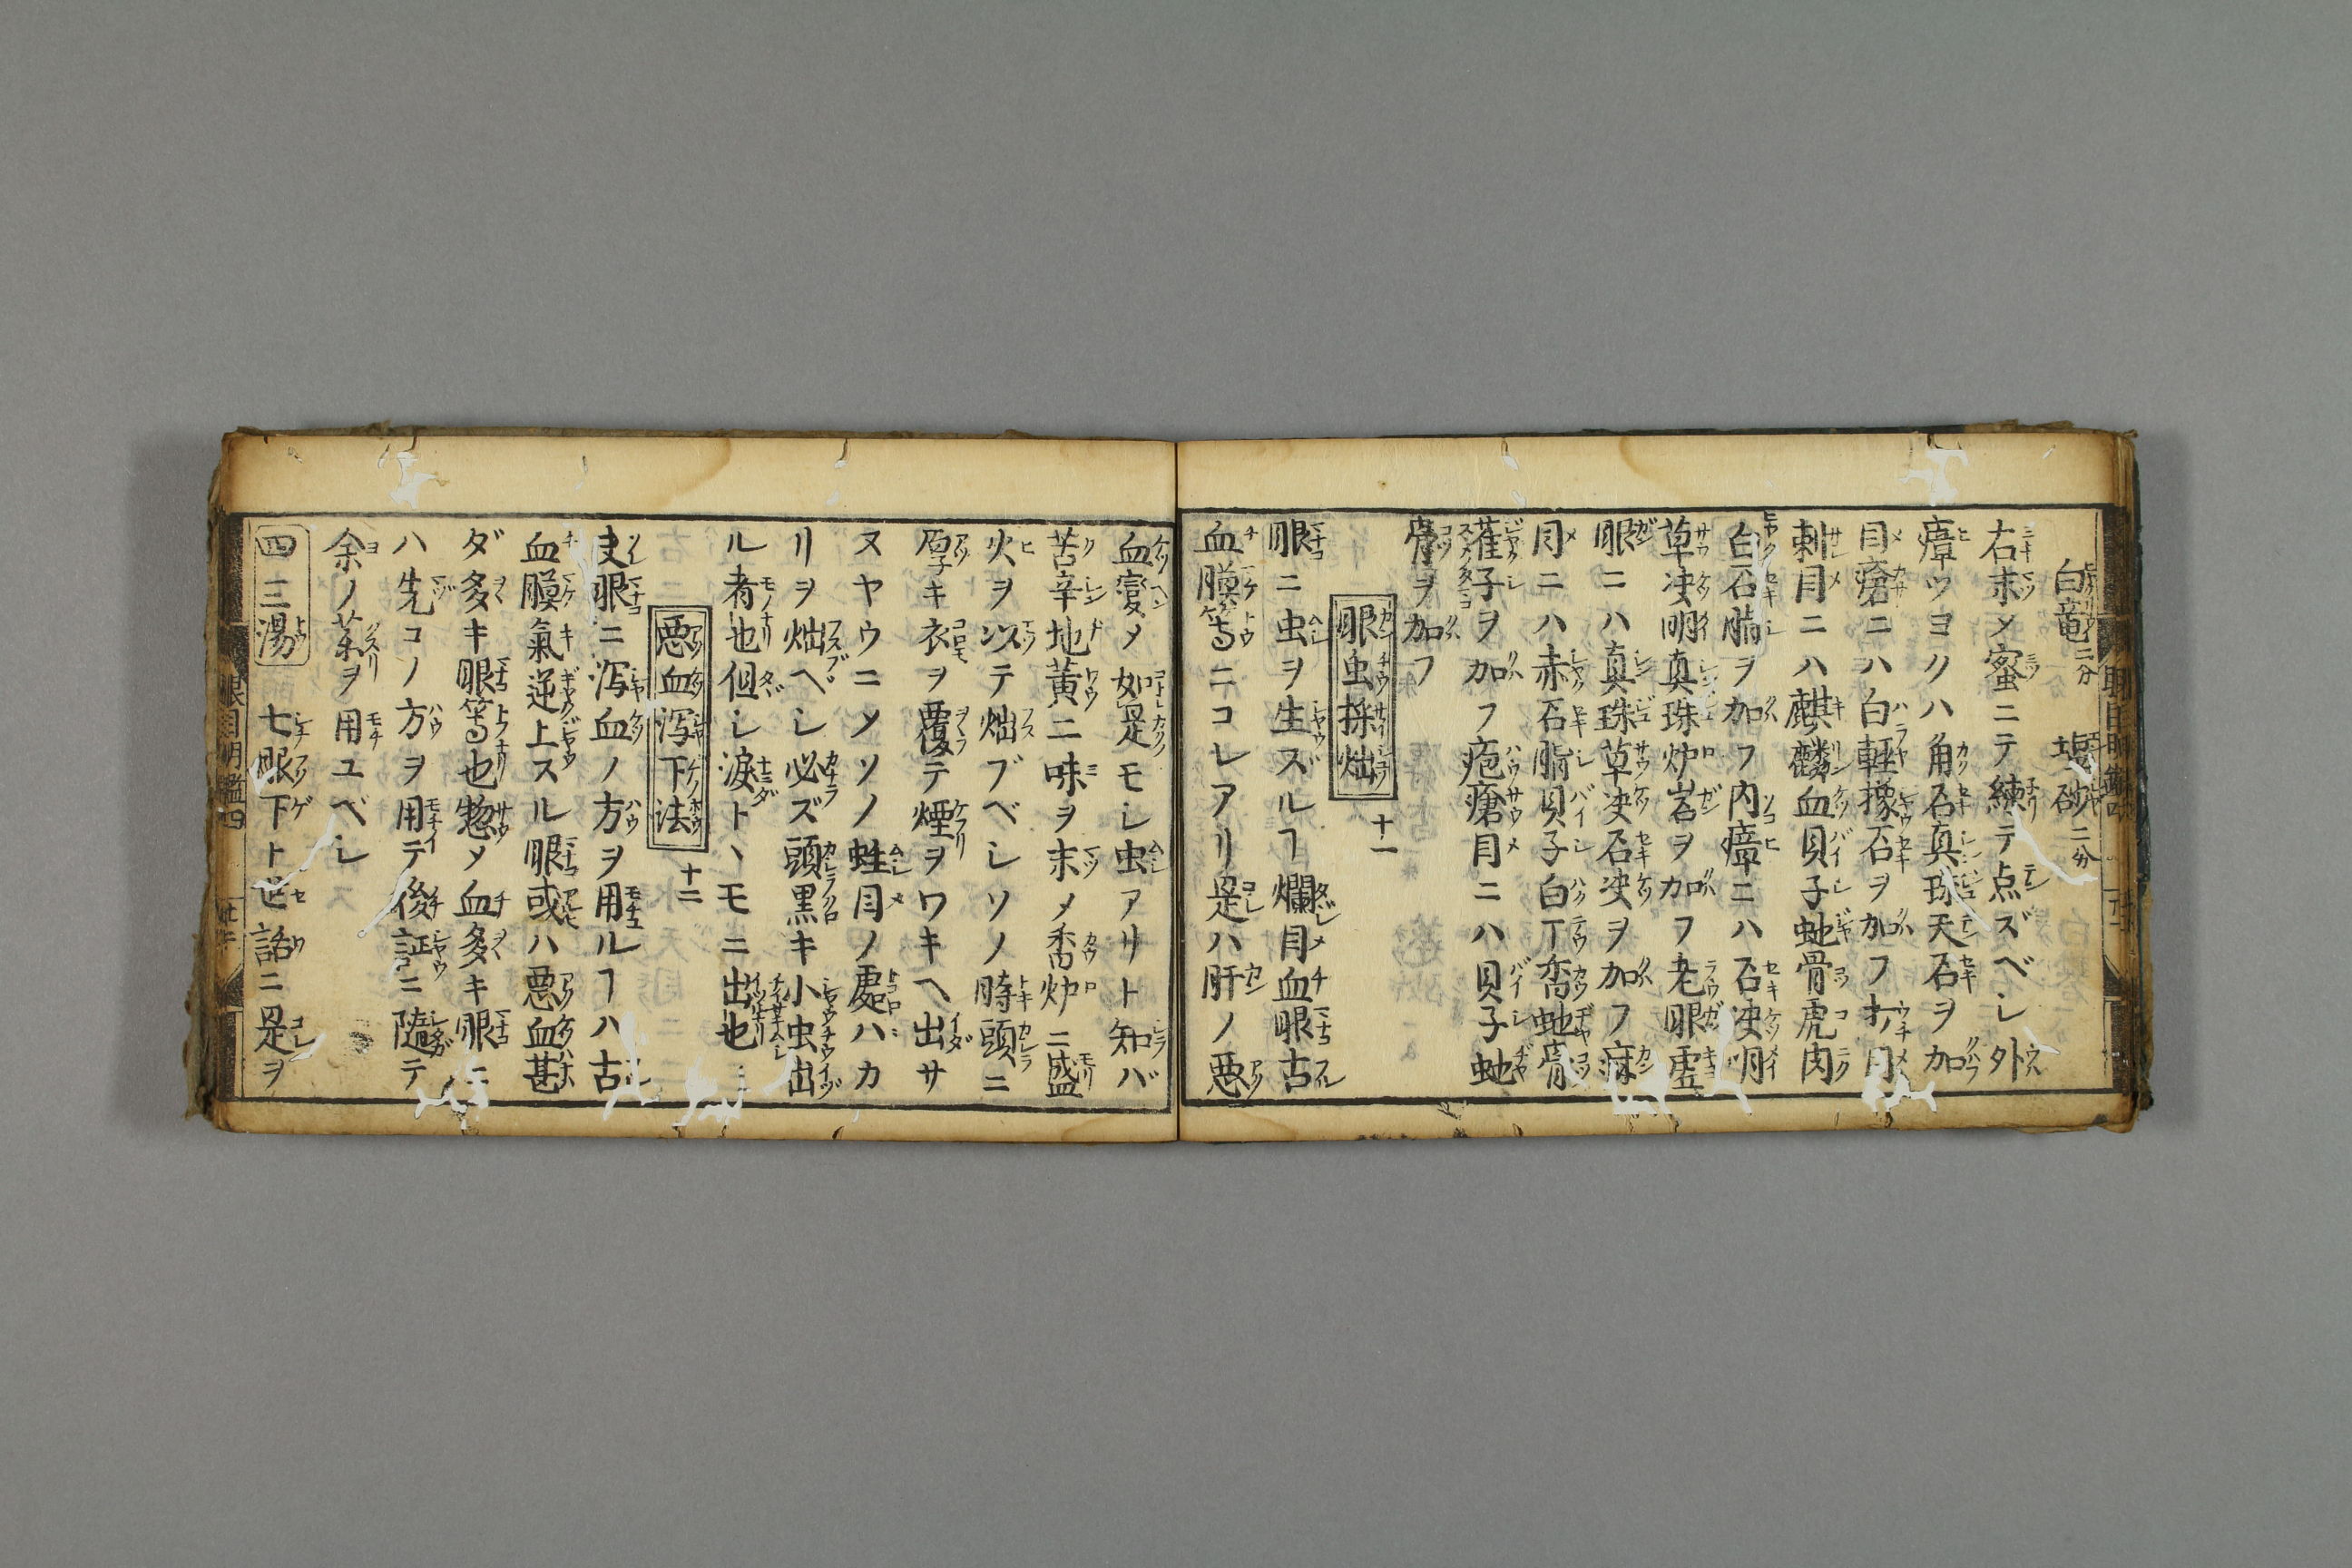 白竜二分 塩砂二分
右末〆蜜ニテ練テ点ズベし外
瘴ツヨクハ角石真珠天石ヲ加
目瘡ニハ白軽擽石ヲ加フ打目
刺目ニハ麒麟血貝子虵骨虎肉
白石脂ヲ加フ内瘴ニハ石决明
草决明真珠炉岩ヲ加フ老眼虚
眼ニハ真珠草决石决ヲ加フ痳
目ニハ赤石脂貝子白丁喬虵骨
雀子ヲ加フ疱瘡目ニハ貝子虵
骨ヲ加フ
眼虫採㷀 十一
眼ニ虫ヲ生ズルヿ爛目血眼古
血膜等ニコレアリ是ハ肝ノ悪
血變〆如是モし虫アリト知バ
苦辛地黄二味ヲ末〆香炉ニ盛
火ヲ以テ㷀ブベしソノ時頭ニ
厚キ衣ヲ覆テ煙ヲワキヘ出サ
ヌヤウニ〆ソノ蛙目ノ處ハカ
リヲ㷀ヘし必ズ頭黒キ小虫出
ル者也但し涙トヽモニ出也
悪血瀉下法 十二
夫眼ニ瀉血ノ方ヲ用ルヿハ古
血膜氣逆上スル眼或ハ悪血甚
ダ多キ眼等也惣〆血多キ眼ニ
ハ先コノ方ヲ用テ後証ニ隨テ
余ノ薬ヲ用ユベし
四三湯 七眼下ト世話ニ是ヲ
眼目明鑑四